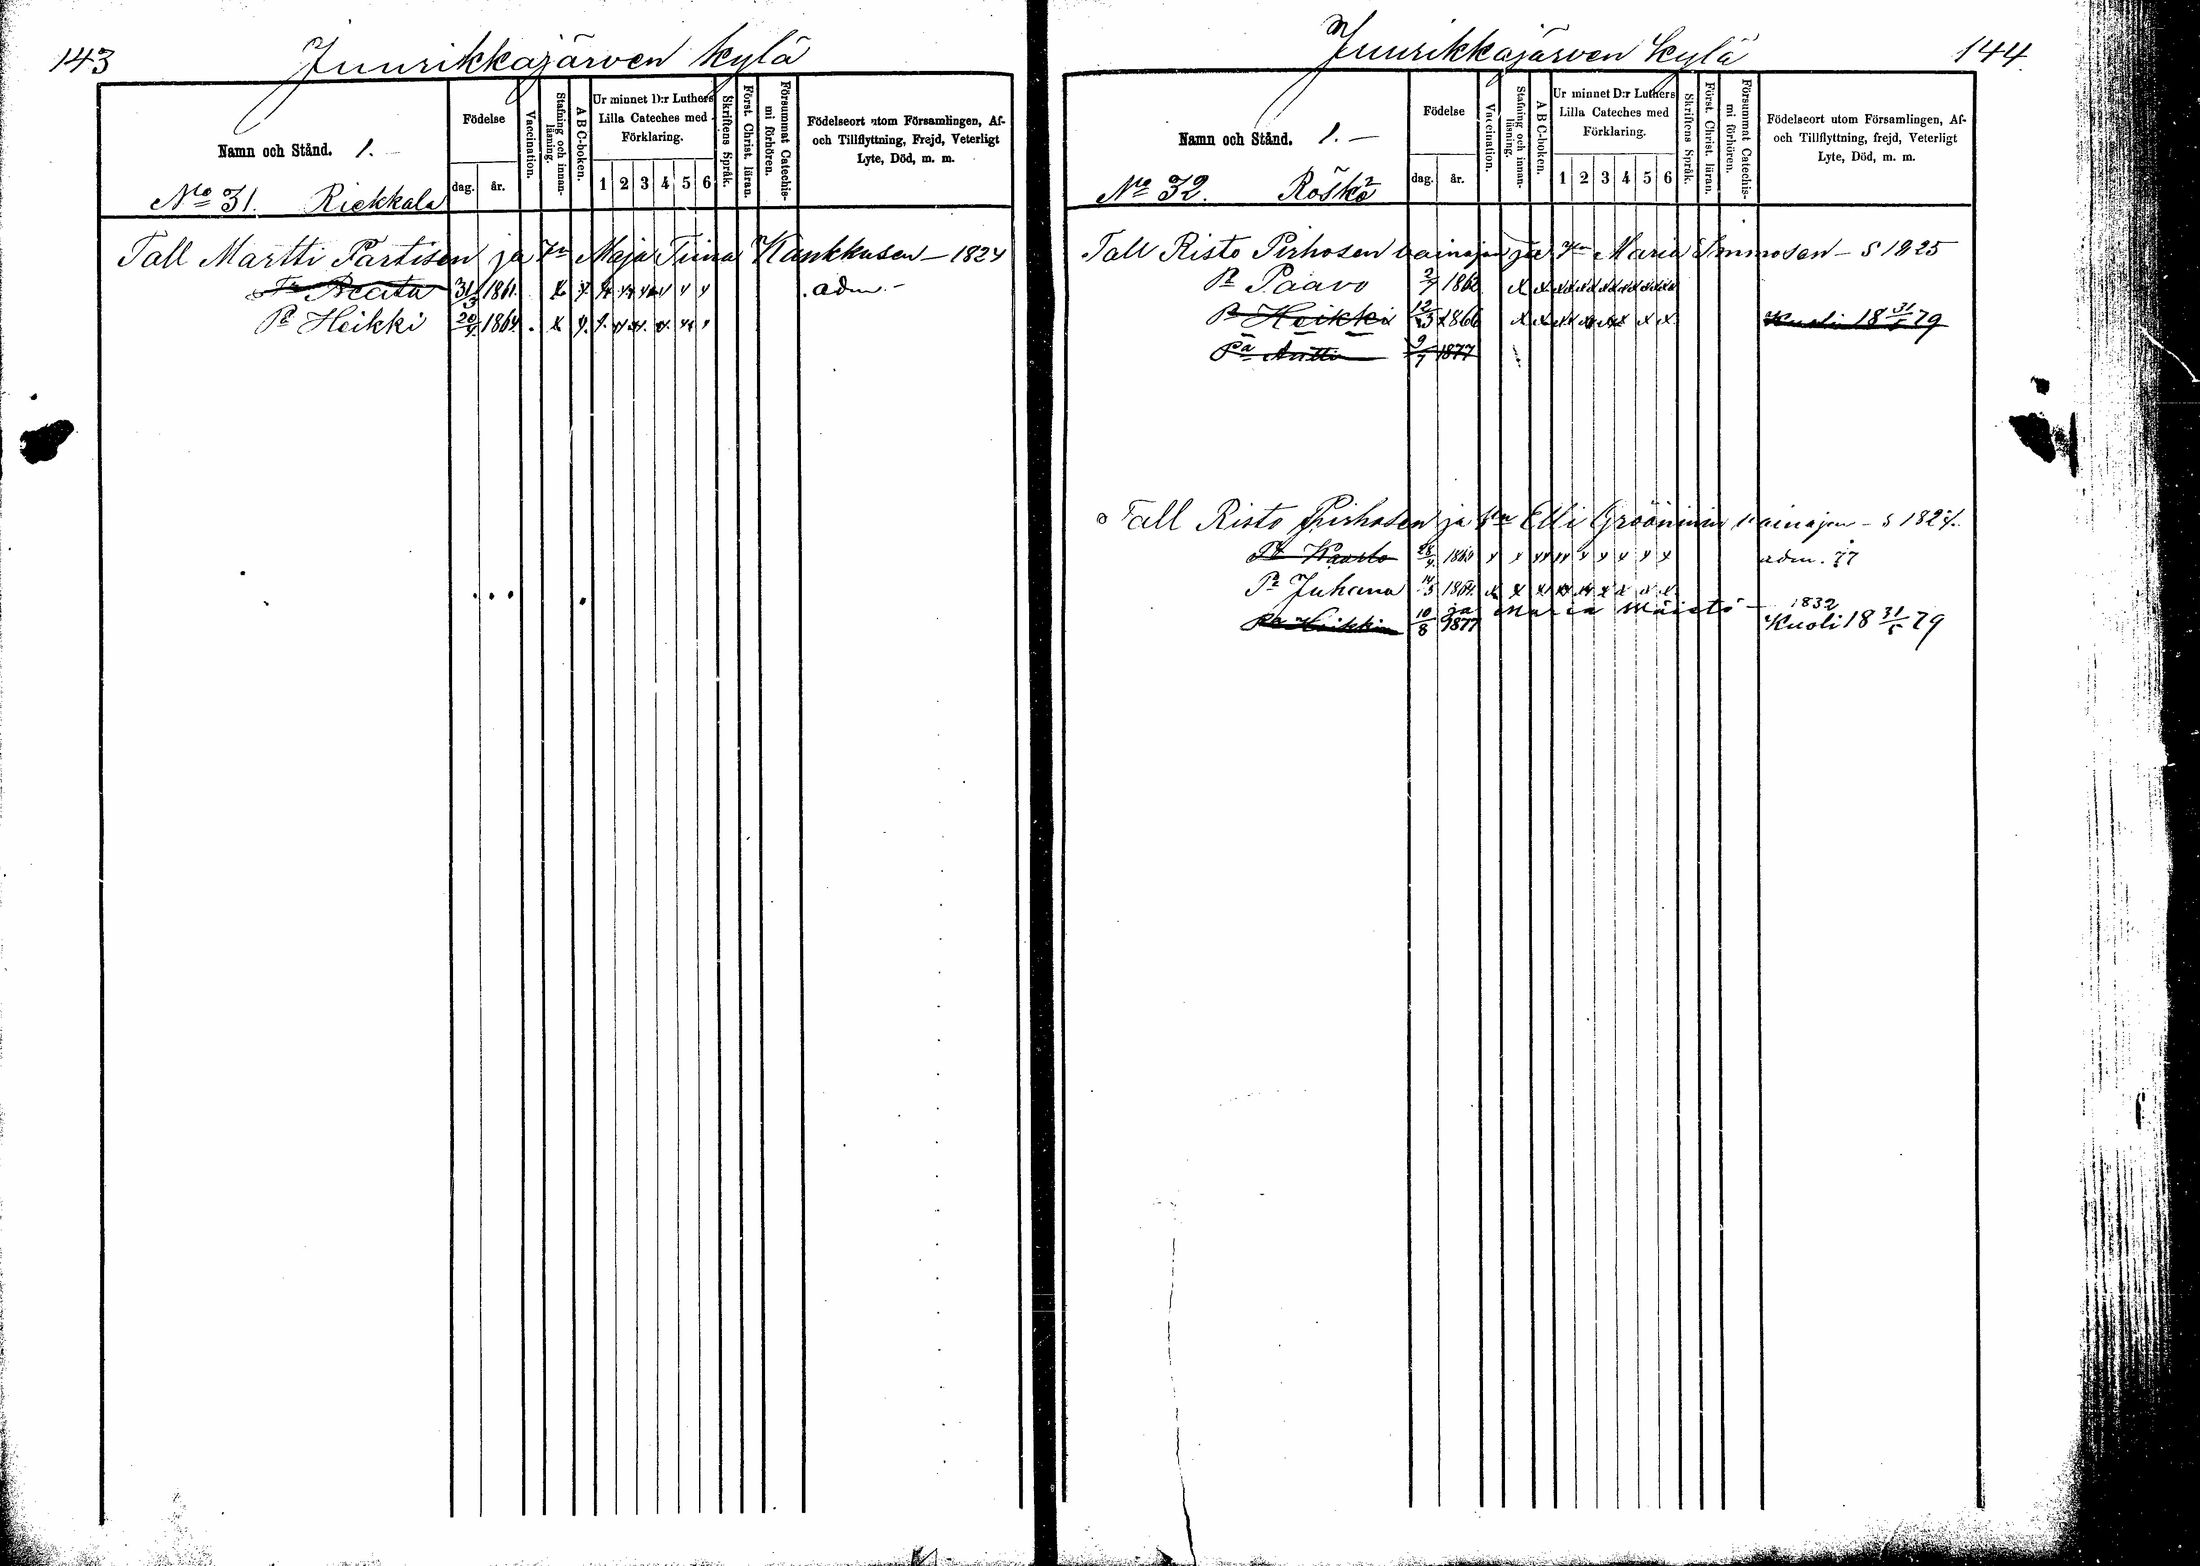 143
Juurikkajärven kylä
Namn och Stånd. 1. —
Födelse
dag. år.
Vaccination.
Stafning och innan-läsning.
A B C-boken.
Ur minnet D:r Luthers Lilla Cateches med Förklaring.
1 2 3 4 5 6
Skriftens Språk.
Först. Christ. läran.
Försummat Catechis-mi förhören.
Födelseort utom Församlingen, Af- och Tillflyttning, Frejd, Veterligt Lyte, Död, m. m.
No 31. Riekkala
Tall Martti Partisen ja Vn Maja Tiina Kankkusen — 1824
Tr Beata 31/3 1861. adm. —
Pa Heikki 20/4 1864.
Juurikkajärven kylä
144
Namn och Stånd. 1. —
Födelse
dag. år.
Vaccination.
Stafning och innan-läsning.
A B C-boken.
Ur minnet D:r Luthers Lilla Cateches med Förklaring.
1 2 3 4 5 6
Skriftens Språk.
Först. Christ. läran.
Försummat Catechis-mi förhören.
Födelseort utom Församlingen, Af- och Tillflyttning, frejd, Veterligt Lyte, Död, m. m.
No 32. Röskö
Tall Risto Pirhosen vainajan ja Vn Maria Immosen — s 1825
Pa Paavo 1862
Pa Heikki 12/3 1866 Kuoli 18 31/5 79
Pa Antti 9/7 1877
Tall Risto Pirhosen ja Vn Elli Gröönin vainajan — s 1824.
Kaarlo adm. 77
Pa Juhana 14/5 1864
ja Maria Määttä — 1832
Pa Heikki 10/8 1877 Kuoli 18 31/5 79